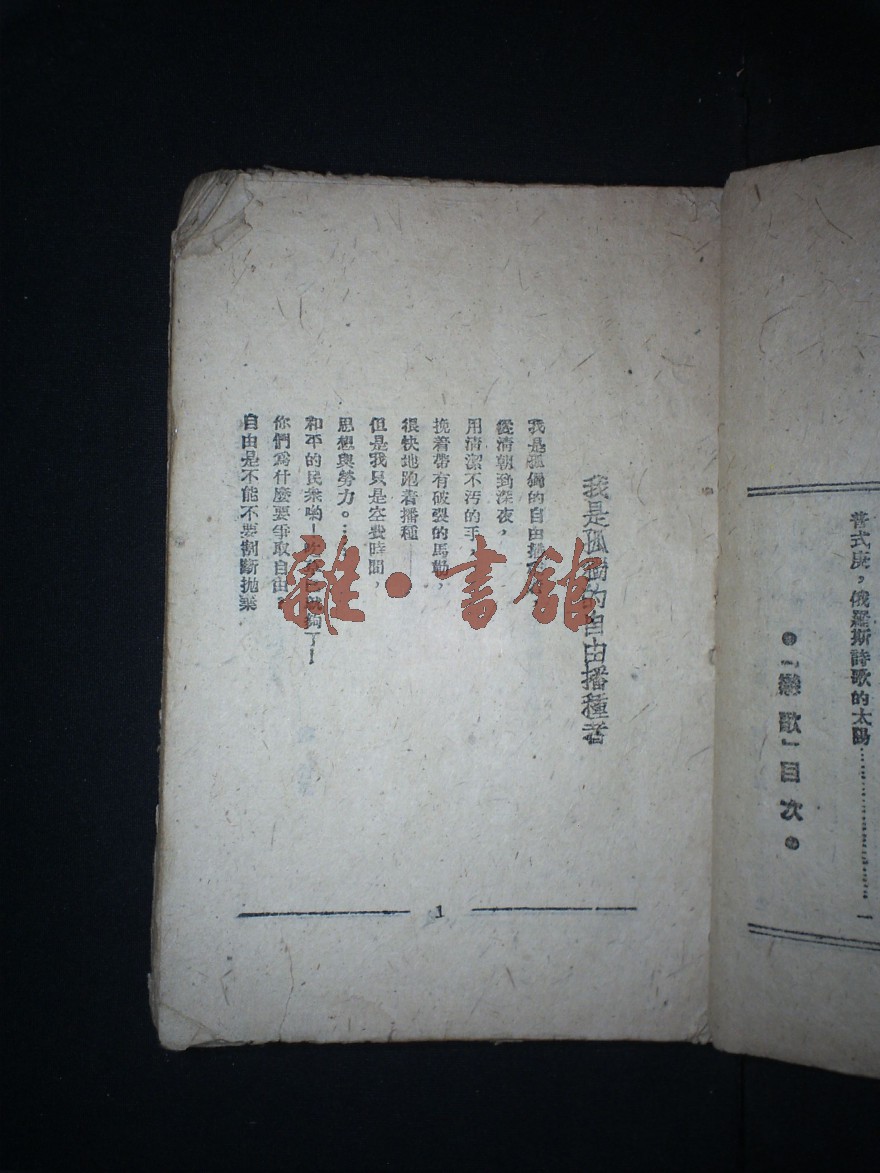 「戀歌」目次
普式庚，俄羅斯詩歌的太陽……一
我是孤獨的自由播種者
我是孤獨的自由播
從清朝到深夜，
用清潔不汚的手，
挽着帶有破裂的馬勒，
很快地跑着播種——
但是我只是空費時間，
思想與勞力。……
和平的民衆喲！ 夠了！
你們爲什麼要爭取自由？
自由是不能不要割斷拋棄
1
雜·書館